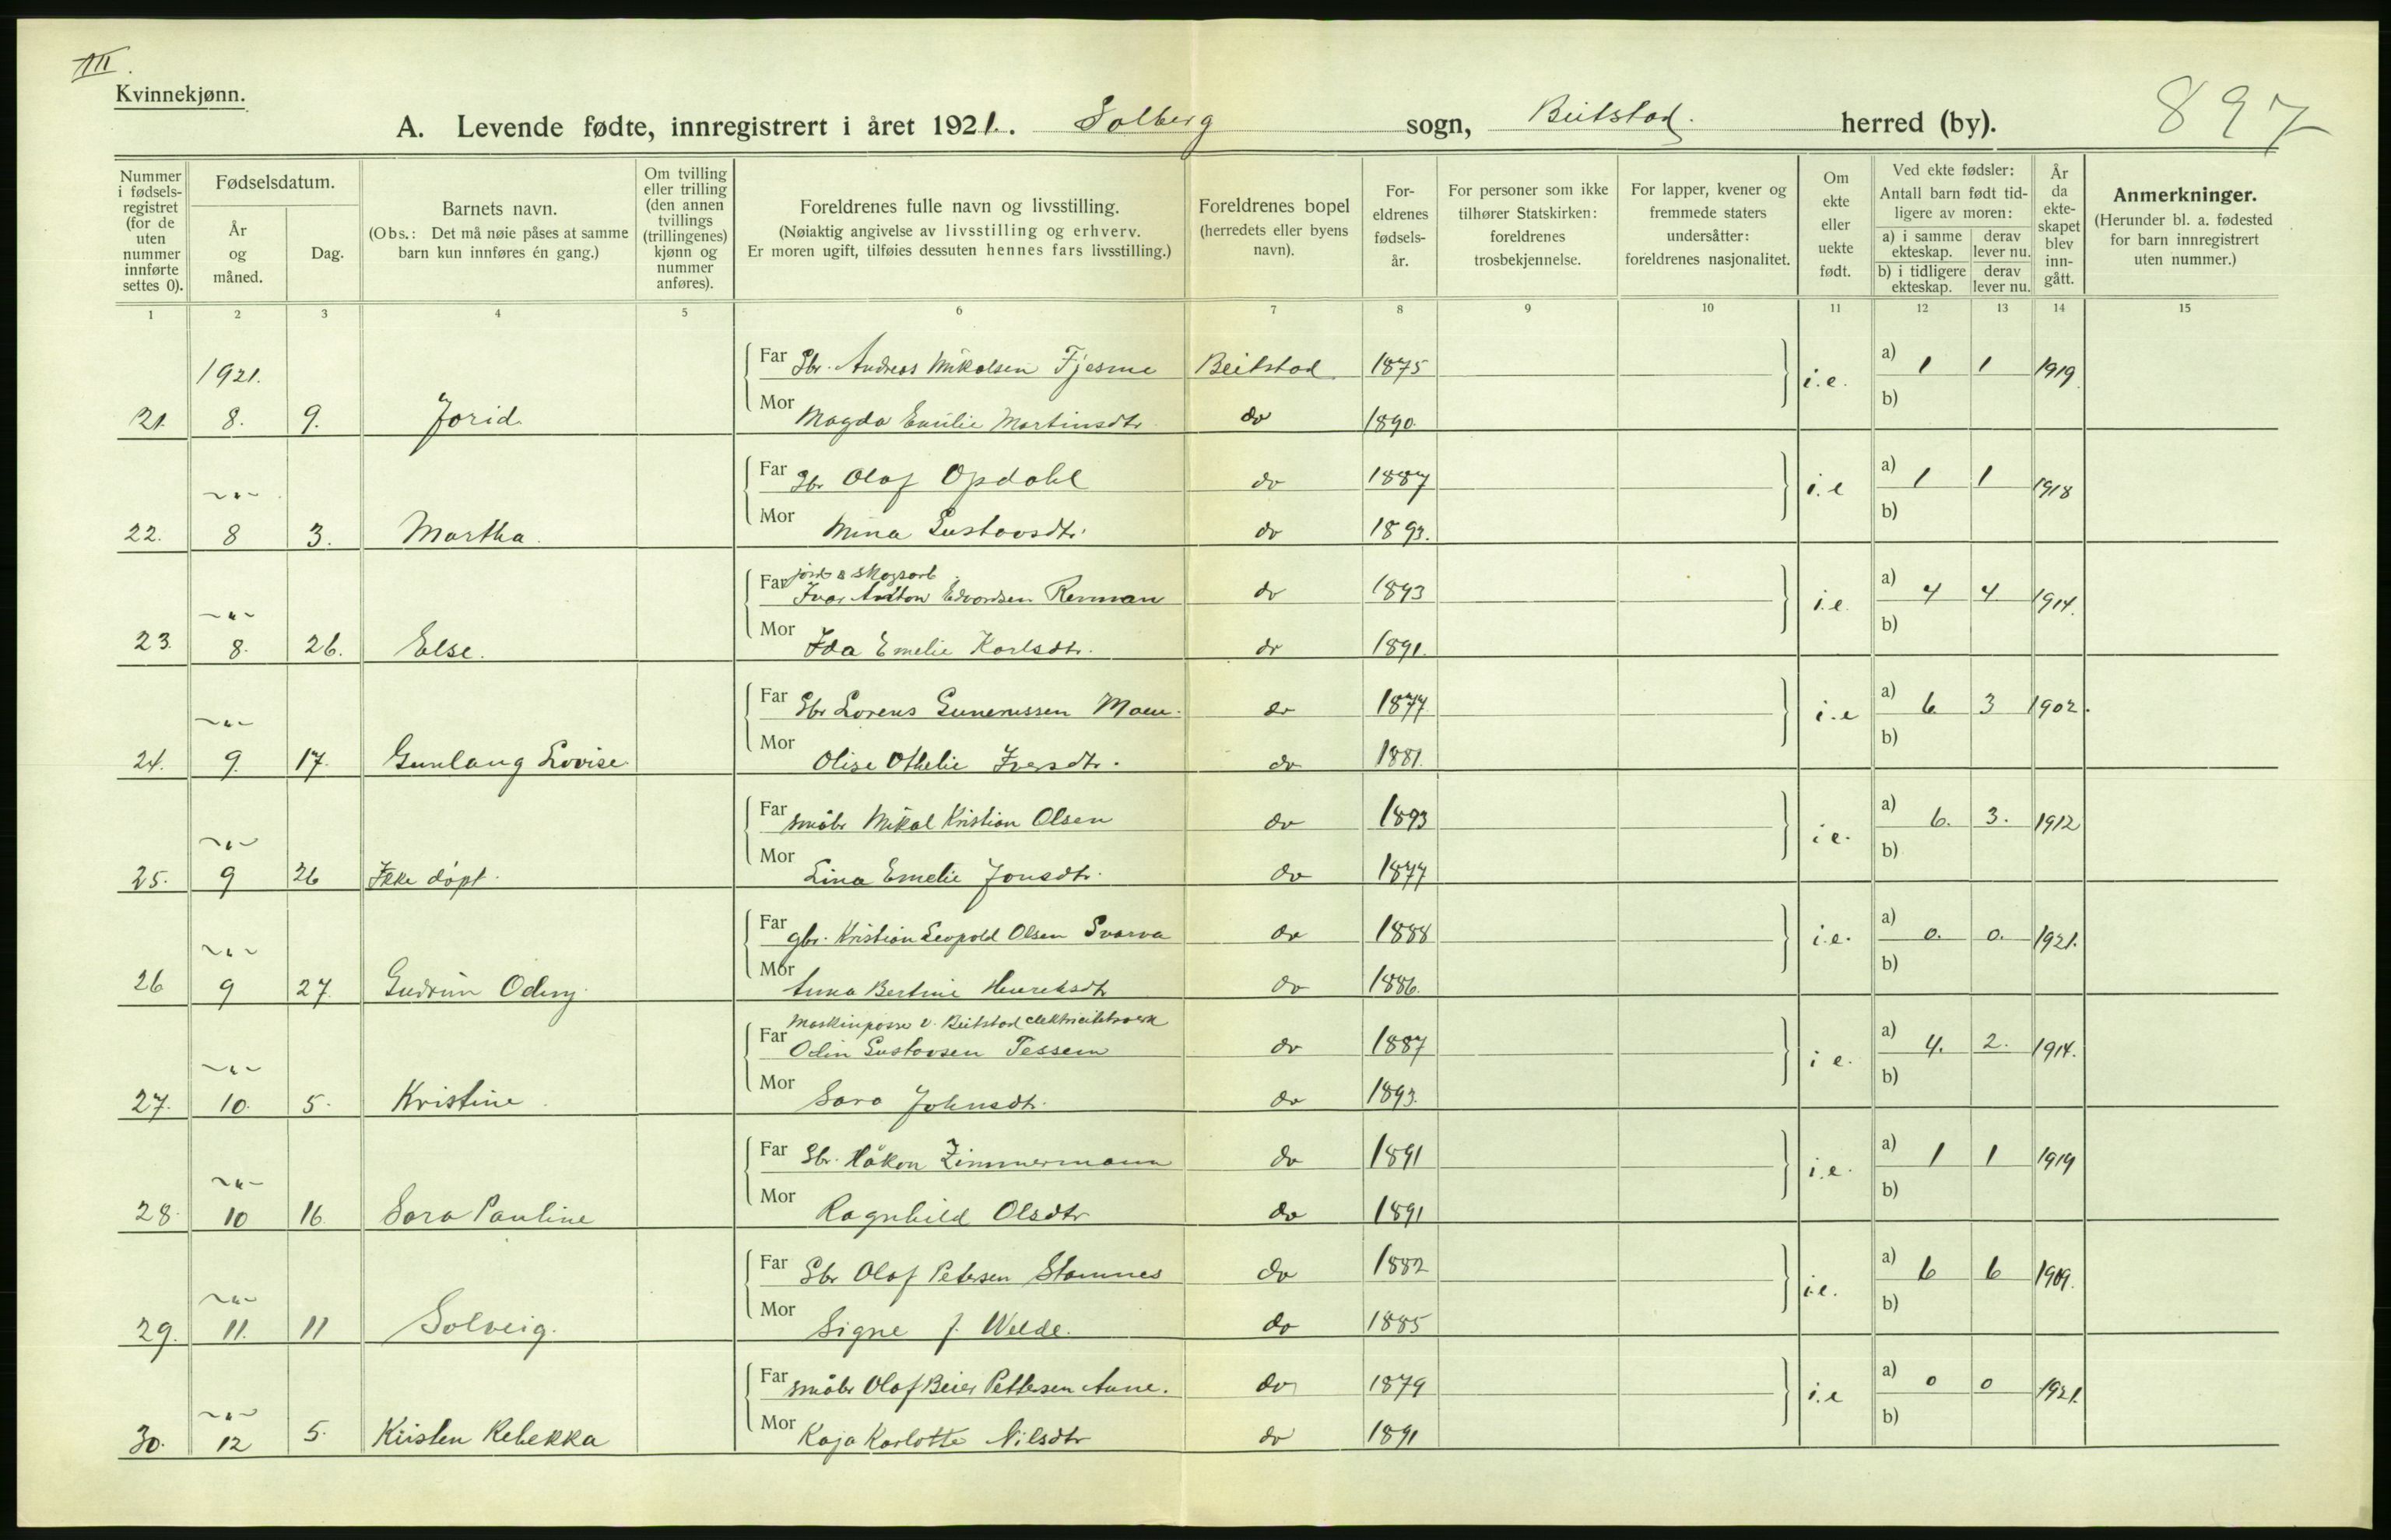 III.
Kvinnekjønn.
A. Levende fødte, innregistrert i året 1921. Solberg sogn, Beitstad. herred (by). 897
Nummer i fødselsregistret (for de uten nummer innførte settes 0).
Fødselsdatum.
År og måned.
Dag.
Barnets navn.
(Obs.: Det må nøie påses at samme barn kun innføres én gang.)
Om tvilling eller trilling (den annen tvillings (trillingenes) kjønn og nummer anføres).
Foreldrenes fulle navn og livsstilling.
(Nøiaktig angivelse av livsstilling og erhverv.
Er moren ugift, tilføies dessuten hennes fars livsstilling.)
Foreldrenes bopel (herredets eller byens navn).
For-eldrenes fødsels-år.
For personer som ikke tilhører Statskirken: foreldrenes trosbekjennelse.
For lapper, kvener og fremmede staters undersåtter: foreldrenes nasjonalitet.
Om ekte eller uekte født.
Ved ekte fødsler:
Antall barn født tidligere av moren:
a) i samme ekteskap. derav lever nu.
b) i tidligere ekteskap. derav lever nu.
År da ekte-skapet blev inn-gått.
Anmerkninger.
(Herunder bl. a. fødested for barn innregistrert uten nummer.)
1 2 3 4 5 6 7 8 9 10 11 12 13 14 15
1921.
Far Gbr. Andreas Mikalsen Fjesme Beitstad 1875 i.e. a) 1 1 1919
21. 8. 9. Jorid. Mor Magda Emilie Martinsdtr. do 1890. b)
Far Gbr Olaf Opdahl do 1887 i.e a) 1 1 1918
22. 8 3. Martha. Mor Mina Gustavsdtr. do 1893. b)
jord & skogsarb.
Far Ivar Anton Edvardsen Renman do 1893 i.e. a) 4 4 1914.
23. 8. 26. Else. Mor Ida Emelie Karlsdtr. do 1891. b)
Far Gbr Lorens Gunerussen Moen. do 1877 i.e a) 6 3 1902.
24. 9. 17. Gunlaug Lovise. Mor Olise Othelie Iversdtr. do 1881. b)
Far småbr Mikal Kristian Olsen do 1893 i e. a) 6. 3. 1912
25. 9 26 Ikke døpt. Mor Lina Emelie Jonsdtr. do 1877 b)
Far gbr. Kristian Leopold Olsen Svarva do 1888 i.e. a) 0. 0. 1921.
26 9 27. Gudrun Odny. Mor Anna Bertine Henriksdtr do 1886. b)
Maskinpasser v. Beitstad elektricitetsverk
Far Odin Gustavsen Tessem do 1887 i e. a) 4. 2. 1914.
27. 10. 5. Kristine. Mor Sara Johnsdtr. do 1893. b)
Far Gbr. Håkon Zimmermann do 1891 i.e. a) 1 1 1919
28. 10 16. Sara Pauline Mor Ragnhild Olsdtr do 1891 b)
Far Gbr Olaf Petersen Stamnes do 1882 i.e. a) 6 6 1909.
29. 11. 11 Solveig. Mor Signe f. Welde. do 1885 b)
Far småbr Olaf Beier Pettersen Aune. do 1879 i.e a) 0 0 1921.
30. 12 5. Kirsten Rebekka Mor Kaja Karlotte Nilsdtr do 1891 b)